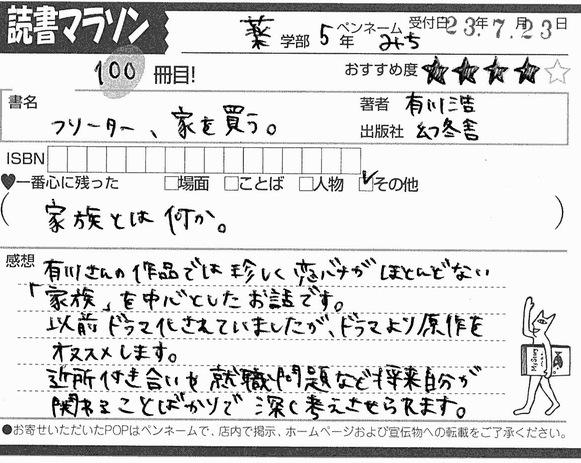 読書マラソン
薬 学部 5 年 ペンネーム みち 受付日 23年 7月23日
100 冊目!
おすすめ度 ★★★★☆
書名 フリーター、家を買う。
著者 有川浩
出版社 幻冬舎
ISBN
♥一番心に残った □場面 □ことば □人物 ☑その他
(家族とは何か。)
感想 有川さんの作品では珍しく恋バナがほとんどない
「家族」を中心としたお話です。
以前ドラマ化されていましたが、ドラマより原作を
オススメします。
近所付き合いや就職問題など将来自分が
関わることばかりで深く考えさせられます。
●お寄せいただいたPOPはペンネームで、店内で掲示、ホームページおよび宣伝物への転載をご了承ください。